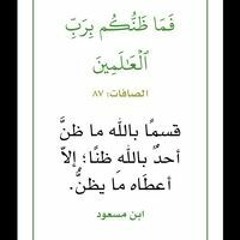 فَمَا ظَنُّكُم بِرَبِّ
ٱلۡعَٰلَمِينَ
الصافات: ٨٧
قسمًا بالله ما ظنَّ
أحدٌ باللهِ ظنًا؛ إلاّ
أعطَاه مَا يظنُّ.
ابن مسعود